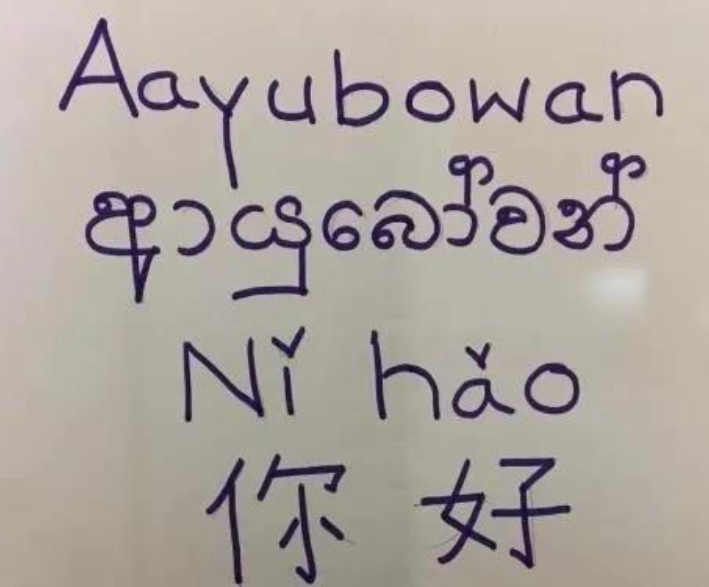 Aayubowan
ආයුබෝවන්
Nǐ hǎo
你 好